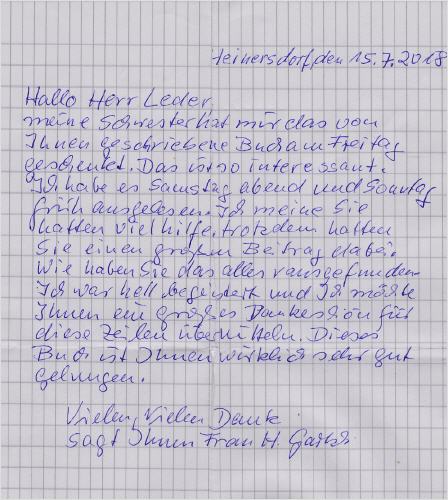 Heinersdorf, den 15.7.2018
Hallo Herr Leder,
meine Schwester hat mir das von
Ihnen geschriebene Buch am Freitag
geschenkt. Das ist so interessant.
Ich habe es Samstag abend und Sonntag
früh ausgelesen. Ich meine Sie
hatten viel hilfe, trotzdem hatten
Sie einen großen Beitrag dabei.
Wie haben Sie das alles rausgefunden
Ich war hell begeistert und Ich möchte
Ihnen ein großes Dankeschön für
diese Zeilen übermitteln. Dieses
Buch ist Ihnen wirklich sehr gut
gelungen.
Vielen, Vielen Danke
sagt Ihnen Frau H.